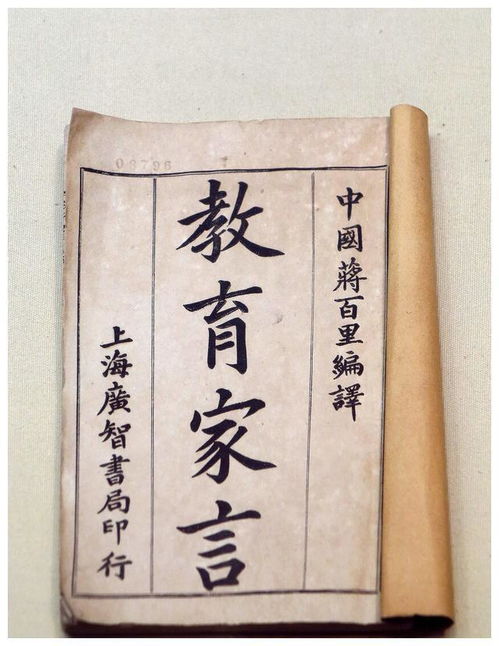 中國蔣百里編譯
教育家言
上海廣智書局印行